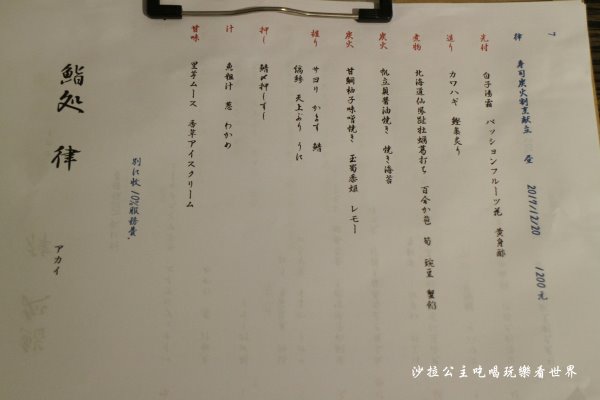 7
律 壽司炭火割烹献立 昼 2017/12/20 1200元
先付 白子湯霜 パッションフルーツ花 黄身酢
造り カワハギ 鰹藁炙り
煮物 北海道仙鳳趾牡蠣葛打ち 百合か芭 筍 豌豆 蟹餡
炭火 帆立貝醤油焼き 焼き海苔
炭火 甘鯛柚子味噌焼き 玉蜀黍 レモー
握り サヨリ かます 鯖
縞鯵 天上ぶり うに
押し 鯖〆押しずし
汁 魚粗汁 葱 わかめ
甘味 里芋ムース 香草アイスクリーム
別に收10%服務費.
鮨処 律
アカイ
沙拉公主吃喝玩樂看世界